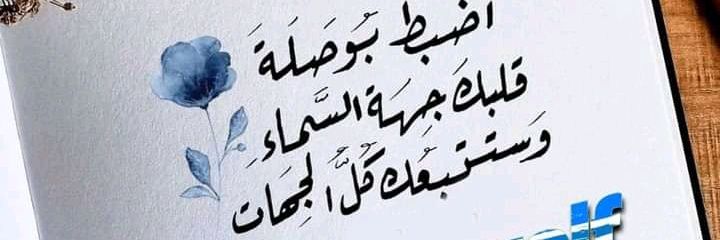 اضبط بُوصَلَةَ
قلبكَ جِهَة السَّماءِ
وَستتبعُك كُلُّ الجِهَات